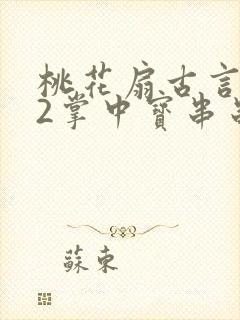 桃花扇古言
2掌中寳串
蘇束